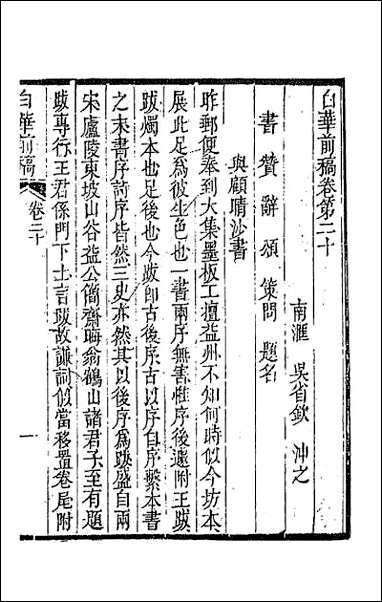 白華前稿卷第二十
南滙 吳省欽 沖之
書 贊 辭 頌 策問 題名
與顧晴沙書
昨郵便奉到大集墨板工擅益州不知何時似今坊本
展此足為彼坐色也一書兩序無害惟序後遽附王跋
跋燭本也足後也今跋即古後序古以序自序繫本書
之末書序詩序皆然三史亦然其以後序為跋盛自兩
宋廬陵東坡山谷益公簡齋晦翁鶴山諸君子至有題
跋專行王君係門下士言跋故謙詞似當移置卷尾附
白華前稿
卷二十
一